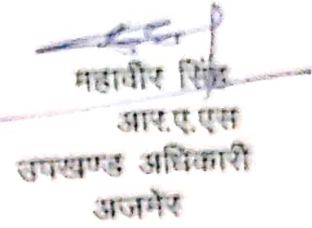 महावीर सिंह
आर.ए.एस
उपखण्ड अधिकारी
अजमेर